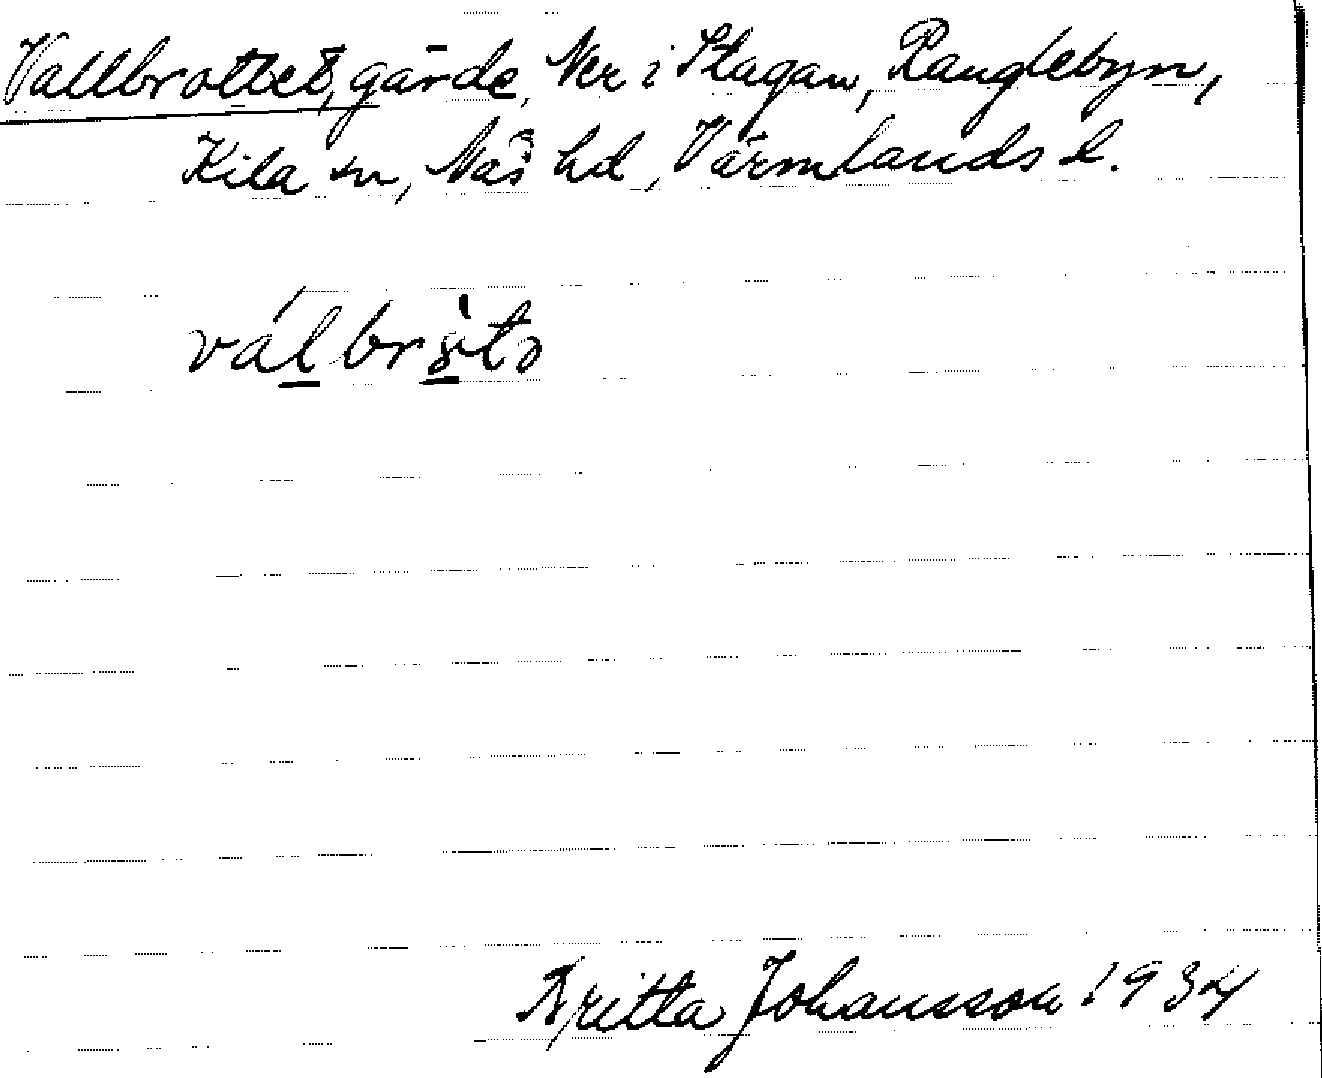 Vallbrottet, gärde, Ner i Stagan, Ranglebyn,
Kila sn, Näs hd, Värmlands l.
Britta Johansson 1934